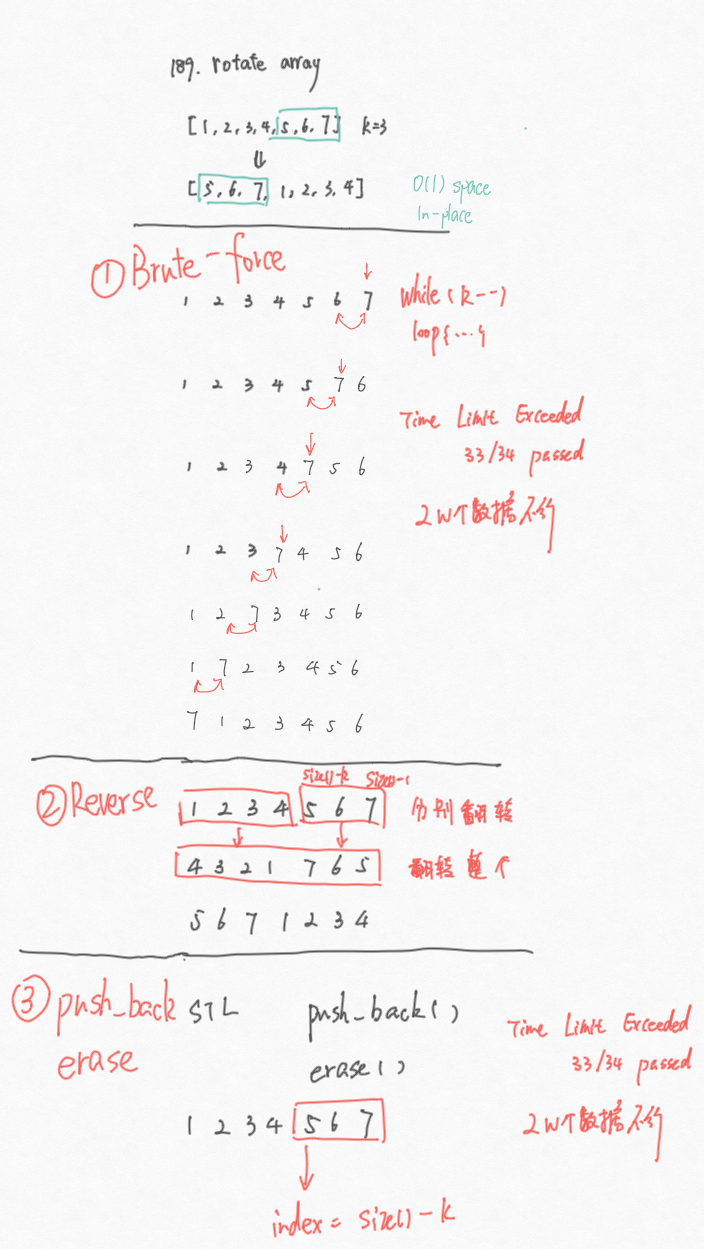 189. rotate array
[1, 2, 3, 4, 5, 6, 7] k=3
[5, 6, 7, 1, 2, 3, 4]
O(1) space
In-place
① Brute-force
1 2 3 4 5 6 7
while(k--)
loop{...}
1 2 3 4 5 7 6
Time Limit Exceeded
33/34 passed
1 2 3 4 7 5 6
2W个数据不行
1 2 3 7 4 5 6
1 2 7 3 4 5 6
1 7 2 3 4 5 6
7 1 2 3 4 5 6
size()-k size()-1
② Reverse
1 2 3 4 5 6 7 分别翻转
4 3 2 1 7 6 5 翻转整个
5 6 7 1 2 3 4
③ push_back
erase
STL push_back()
erase()
Time Limit Exceeded
33/34 passed
1 2 3 4 5 6 7
2W个数据不行
index = size()-k